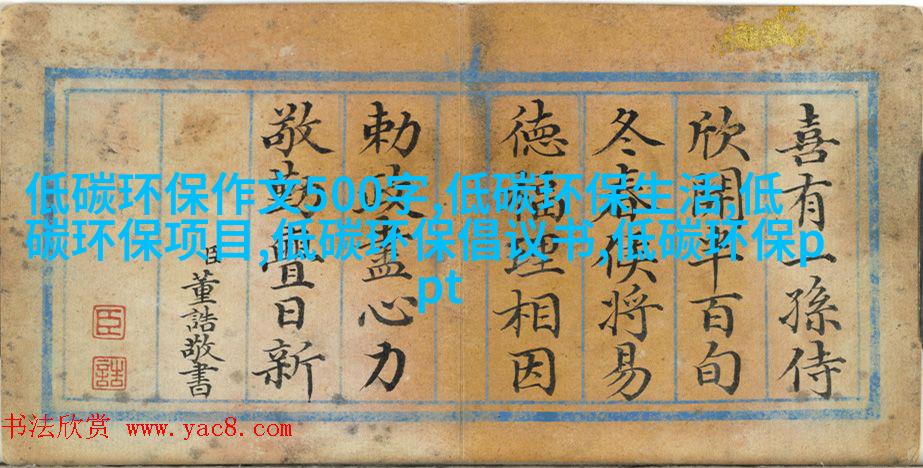 低碳环保作文500字,低碳环保生活,低
碳环保项目,低碳环保倡议书,低碳环保p
pt
喜有一孫侍
欣開半百旬
冬春候將易
德福理相因
勅政盡心力
敬勤日新
臣董誥敬書
臣
誥
书法欣赏 www.yac8.com